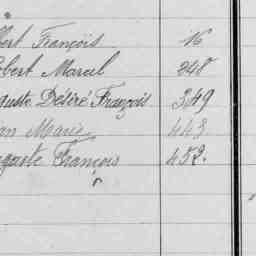 bert François 16
obert Marcel 248
guste Désiré François 349
an Marie 443
guste François 452.